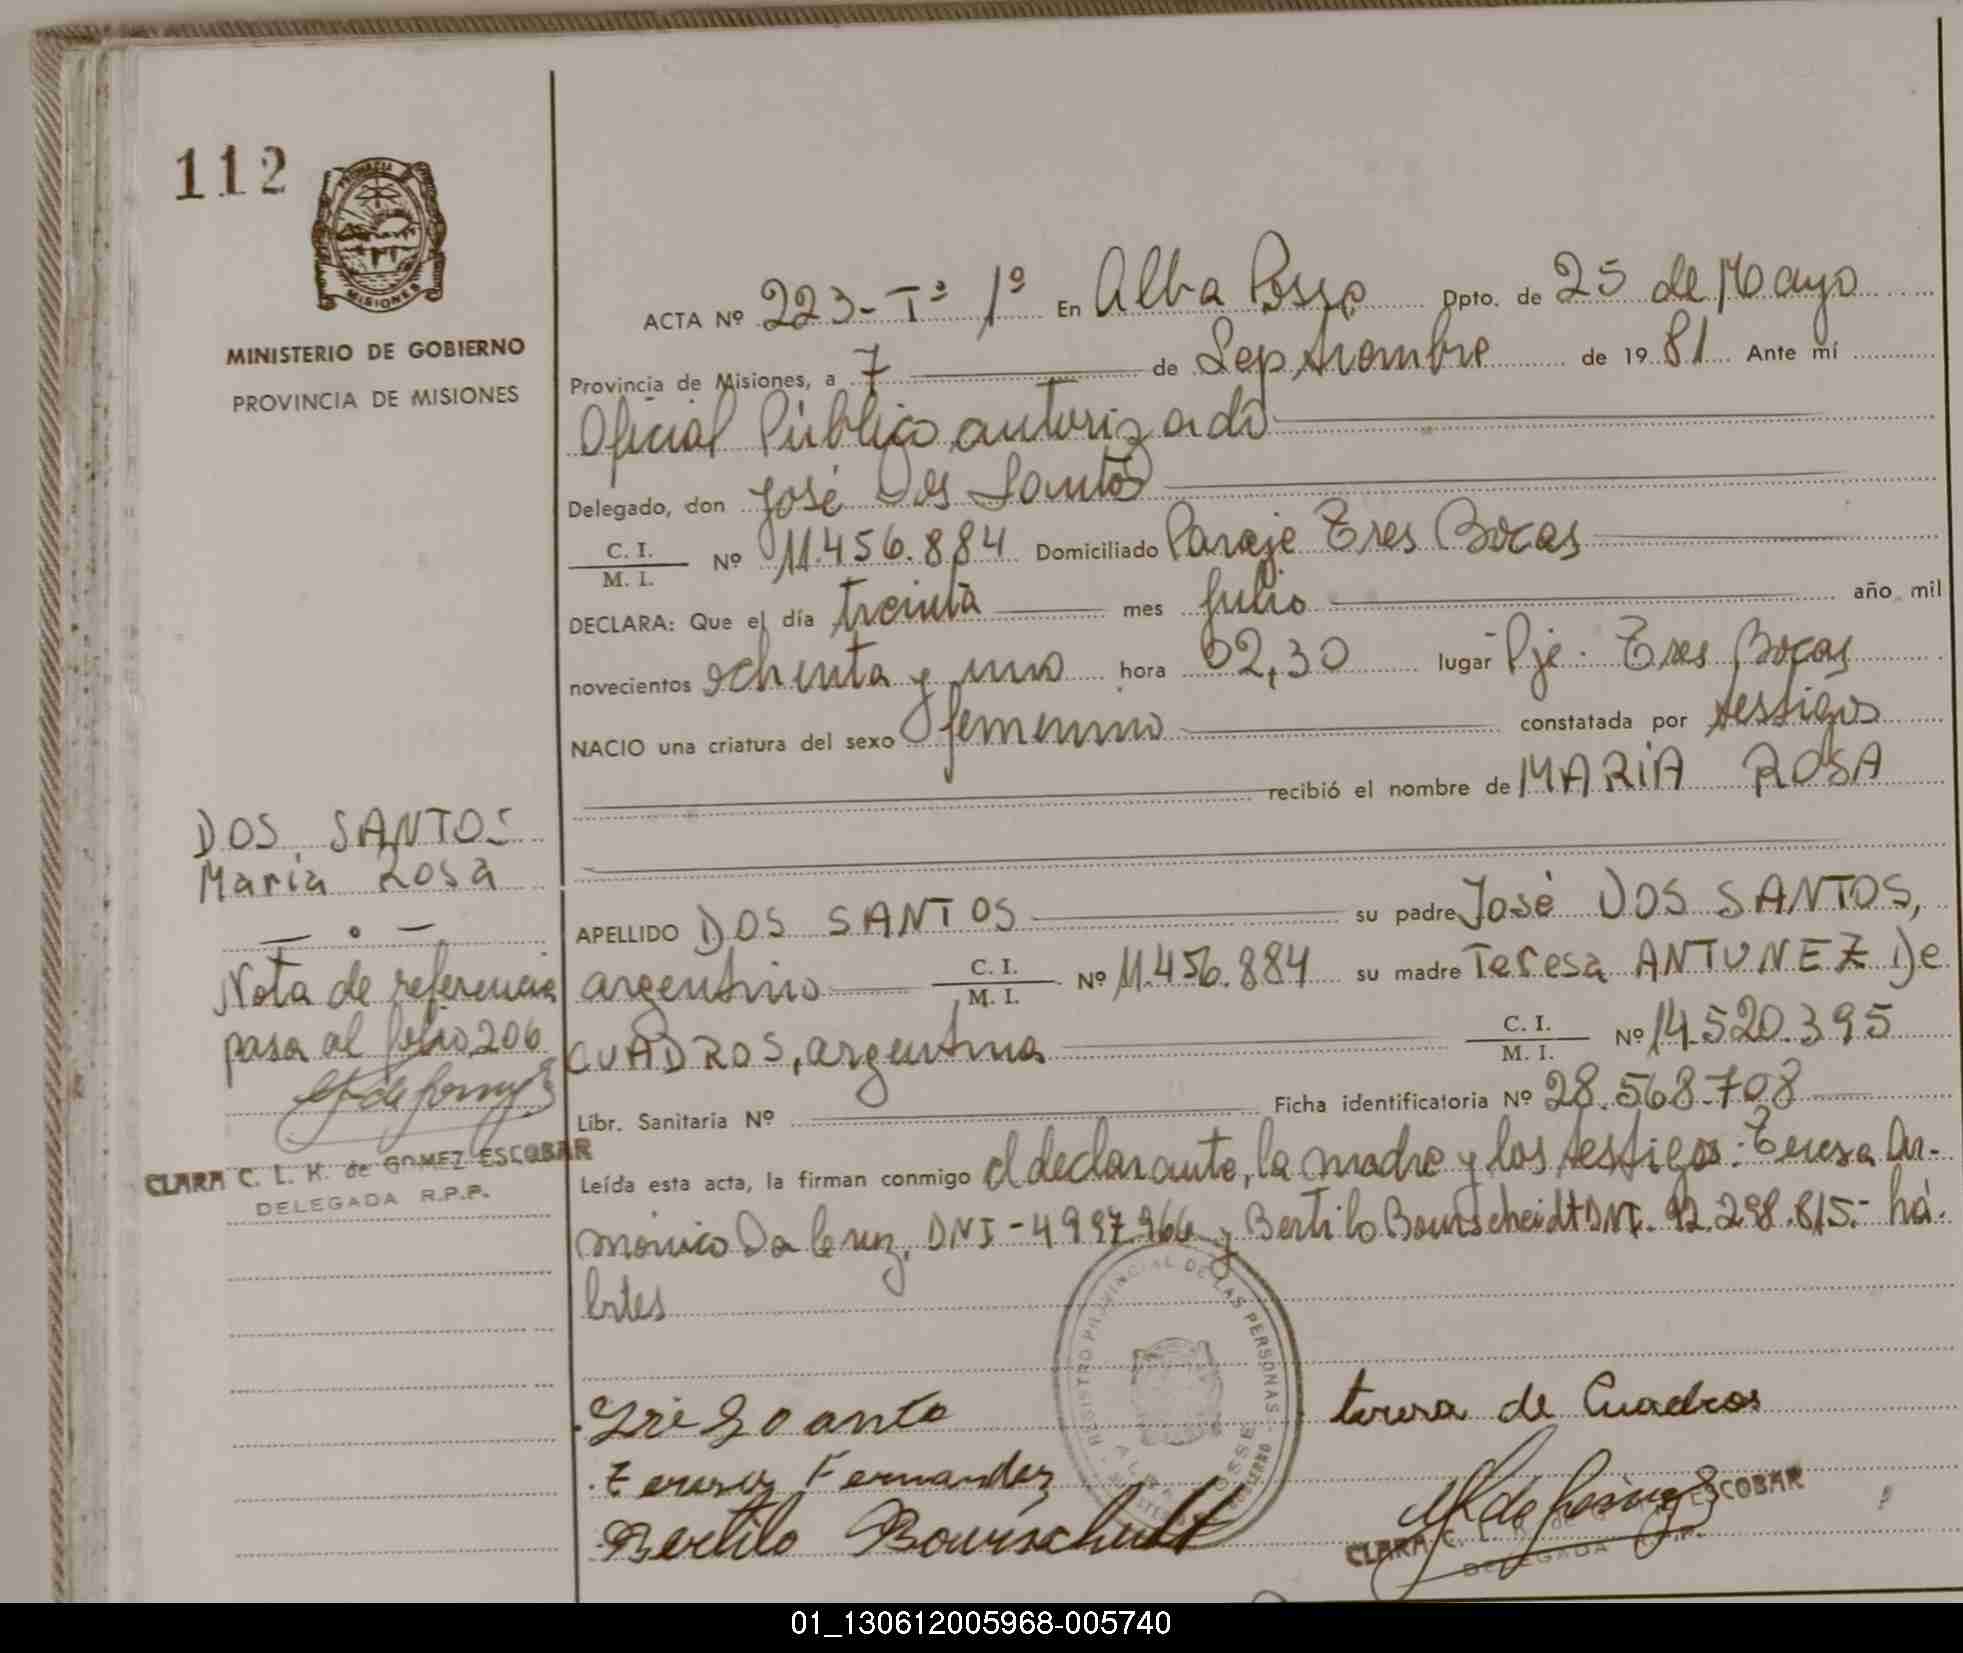 112
PROVINCIA
MISIONES
MINISTERIO DE GOBIERNO
PROVINCIA DE MISIONES
ACTA Nº 223-Tº 1º En Alba Posse Dpto. de 25 de Mayo
Provincia de Misiones, a 7 de Septiembre de 1981 Ante mí
Oficial Público autorizado
Delegado, don José Dos Santos
C. I.
M. I. Nº 11.456.884 Domiciliado Paraje Tres Bocas
DECLARA: Que el día treinta mes Julio año mil
novecientos ochenta y uno hora 02,30 lugar Pje. Tres Bocas
NACIO una criatura del sexo femenino constatada por testigos
recibió el nombre de MARIA ROSA
DOS SANTOS
Maria Rosa
Nota de referencia
pasa al folio 206
CLARA C. L. K. de GOMEZ ESCOBAR
DELEGADA R.P.P.
APELLIDO DOS SANTOS su padre José DOS SANTOS,
argentino C. I.
M. I. Nº 11.456.884 su madre Teresa ANTUNEZ De
CUADROS, argentina C. I.
M. I. Nº 14.520.395
Libr. Sanitaria Nº Ficha identificatoria Nº 28.568.708
Leída esta acta, la firman conmigo el declarante, la madre y los testigos: Teresa
Da Cruz, DNI-4997.966 y Bertilo Bourscheidt DNI. 92.298.815.- há-
biles
REGISTRO PROVINCIAL DE LAS PERSONAS
ALBA POSSE
teresa de Cuadros
Teresa Fernandez
Bertilo Bourscheidt
CLARA C. L. K. ESCOBAR
DELEGADA R.P.P.
01_130612005968-005740